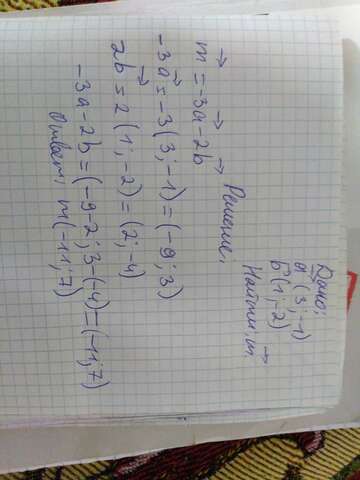 Дано:
a⃗ (3; -1)
b⃗ (1; -2)
Найти: m⃗
Решение:
m⃗ = -3a⃗ - 2b⃗
-3a⃗ = -3(3; -1) = (-9; 3)
2b⃗ = 2(1; -2) = (2; -4)
-3a - 2b = (-9-2; 3-(-4)) = (-11; 7)
Ответ: m(-11; 7)